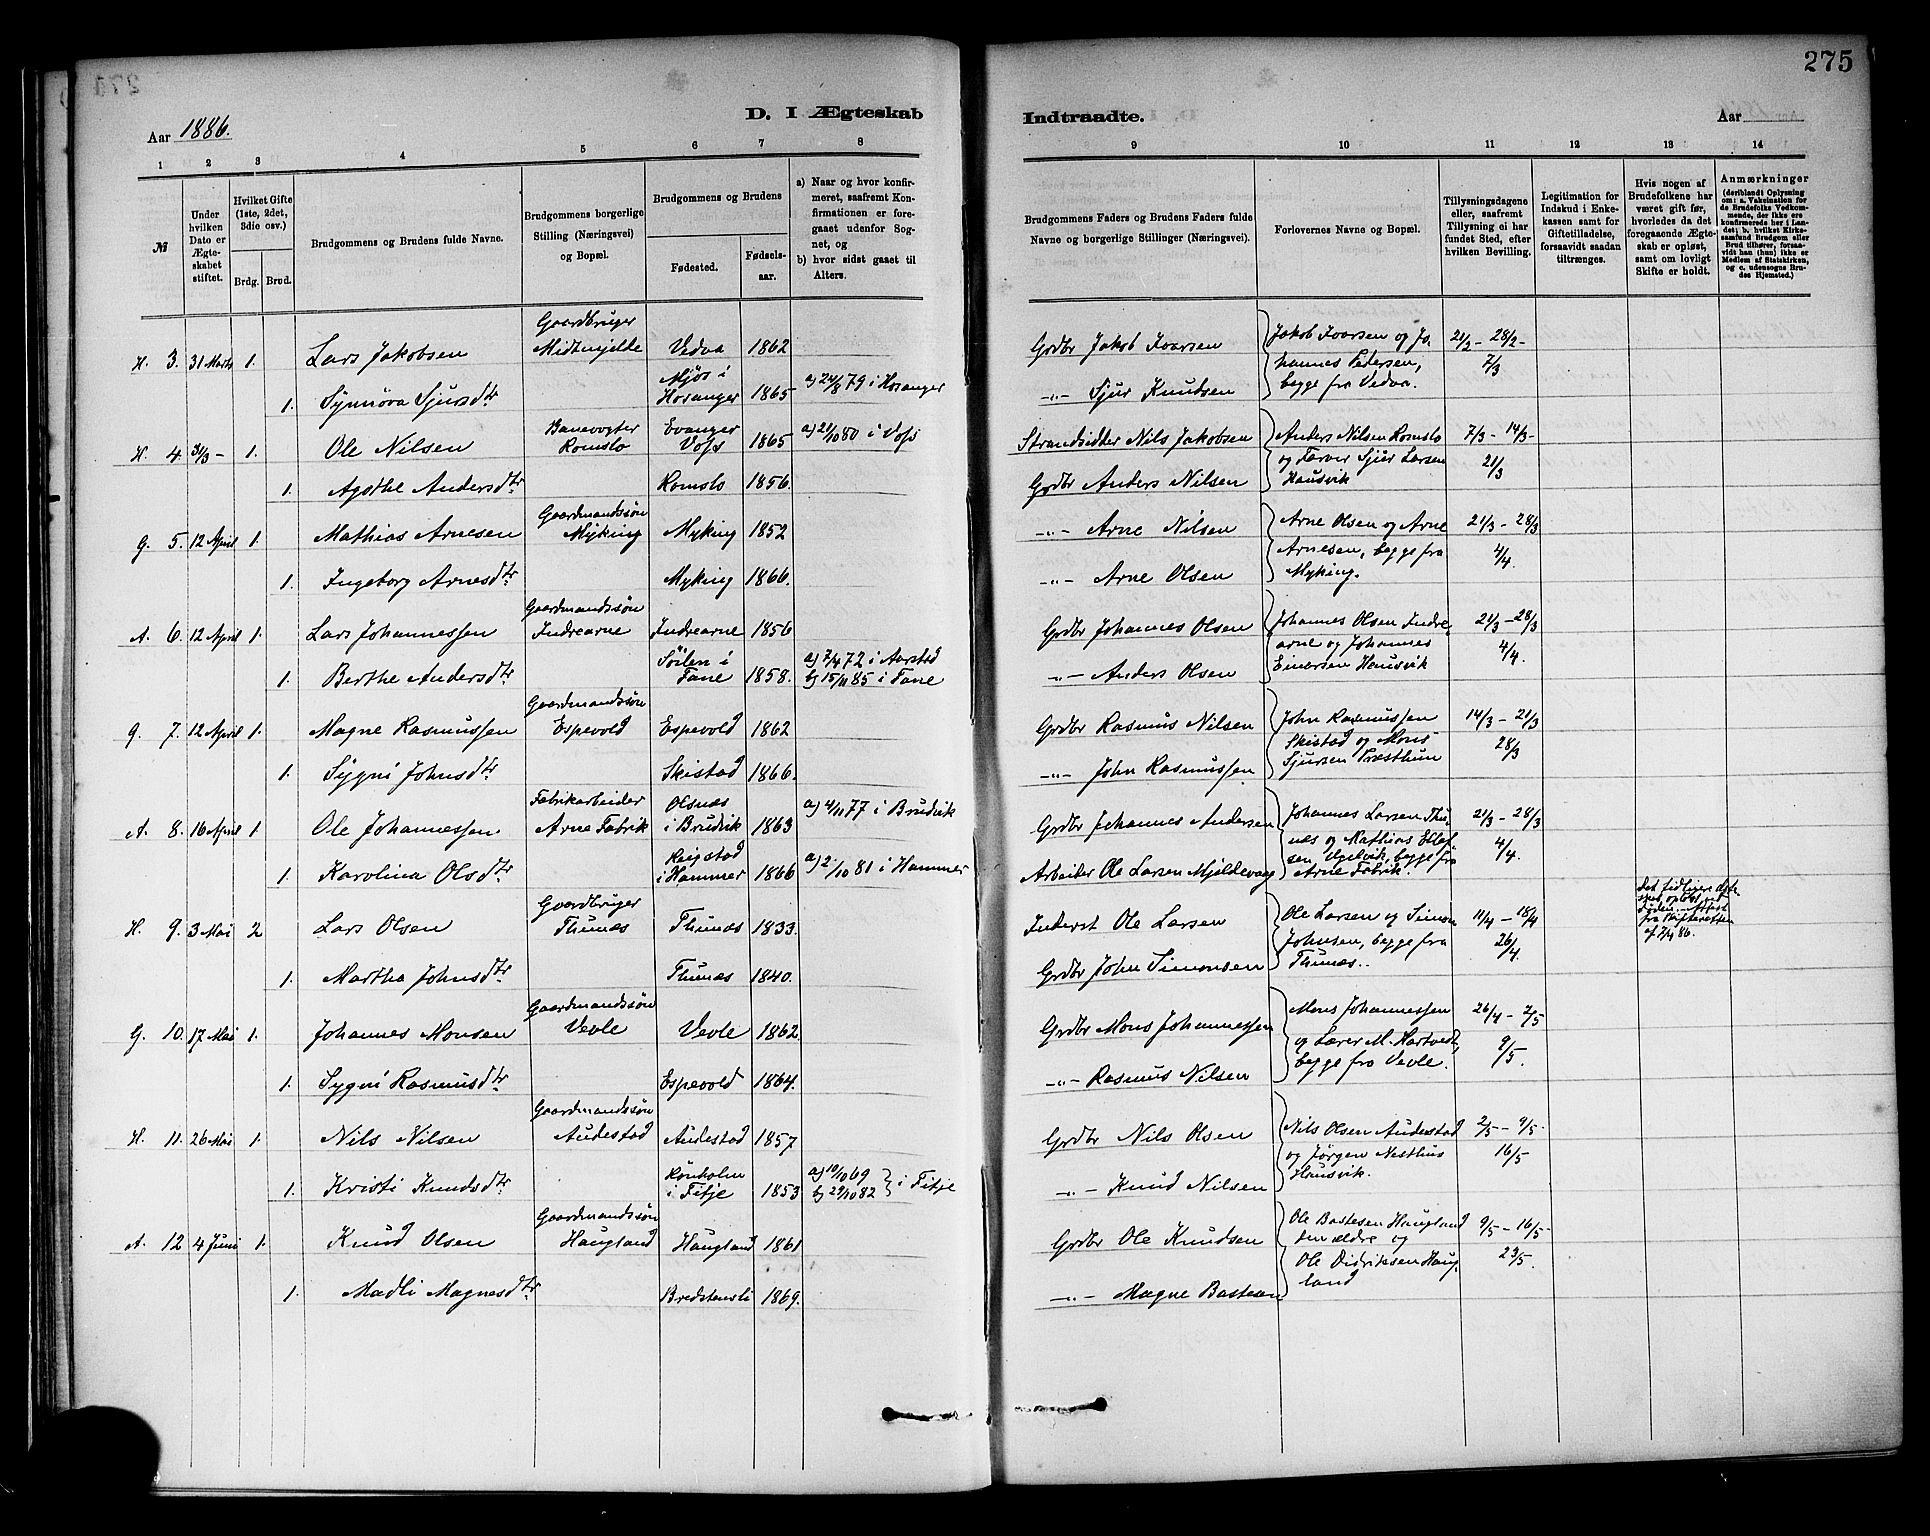 275
Aar 1886.
D. I Ægteskab
Indtraadte.
Aar
1 2 3 4 5 6 7 8
9 10 11 12 13 14
№
Under hvilken Dato er Ægteskabet stiftet.
Hvilket Gifte (1ste, 2det, 3die osv.)
Brdg. Brud.
Brudgommens og Brudens fulde Navne.
Brudgommens borgerlige Stilling (Næringsvei) og Bopæl.
Brudgommens og Brudens
Fødested.
Fødselsaar.
a) Naar og hvor konfirmeret, saafremt Konfirmationen er foregaaet udenfor Sognet, og
b) hvor sidst gaaet til Alters.
Brudgommens Faders og Brudens Faders fulde Navne og borgerlige Stillinger (Næringsvei).
Forlovernes Navne og Bopæl.
Tillysningsdagene eller, saafremt Tillysning ei har fundet Sted, efter hvilken Bevilling.
Legitimation for Indskud i Enkekassen samt for Giftetilladelse, forsaavidt saadan tiltrænges.
Hvis nogen af Brudefolkene har været gift før, hvorledes da det foregaaende Ægteskab er opløst, samt om lovligt Skifte er holdt.
Anmærkninger (deriblandt Oplysning om: a. Vakcination for de Brudefolks Vedkommende, der ikke ere konfirmerede her i Landet; b. hvilket Kirkesamfund Brudgom eller Brud tilhører, forsaavidt han (hun) ikke er Medlem af Statskirken, og c. udensogns Brudes Hjemsted.)
H. 3. 31 Marts 1. Lars Jakobsen Gaardbruger Midtmjelde Vedva 1862 Grdbr Jakob Ivarsen Jakob Ivarsen og Johannes Pedersen, begge fra Vedva. 21/2 - 28/2 - 7/3
1. Synnöva Sjursdtr Mjös i Hosanger 1865 a) 24/8 79 i Hosanger -"- Sjur Knudsen
H. 4. 31/3 - 1. Ole Nilsen Banevogter Romslo Evanger Voss 1865 a) 21/10 80 i Voss Strandsidder Nils Jakobsen Anders Nilsen Romslo og Farver Sjur Larsen Hausvik 7/3 - 14/3 - 21/3
1. Agathe Andersdtr Romslo 1856. Grdbr Anders Nilsen
G. 5. 12 April 1. Mathias Arnesen Gaardmandssön Myking Myking 1852 -"- Arne Nilsen Arne Olsen og Arne Arnesen, begge fra Myking. 21/3 - 28/3 4/4.
1. Ingeborg Arnesdtr Myking 1866. -"- Arne Olsen
A. 6. 12 April 1. Lars Johannessen Gaardmandssön Indrearne Indrearne 1856 Grdbr Johannes Olsen Johannes Olsen Indrearne og Johannes Einarsen Hausvik 21/3 - 28/3 4/4.
1. Berthe Andersdtr Söilen i Fane 1858. a) 7/4 72 i Aarstad b) 15/11 85 i Fane -"- Anders Olsen
G. 7. 12 April 1. Magne Rasmussen Gaardmandssön Espevold Espevold 1862 Grdbr Rasmus Nilsen John Rasmussen Skistad og Mons Sjursen Præsthun 14/3 - 21/3 28/3
1. Sygni Johnsdtr Skistad 1866. -"- John Rasmussen
A. 8. 16 April 1. Ole Johannessen Fabrikarbeider Arne Fabrik Olsnæs i Brudvik 1863 a) 4/11 77 i Brudvik Grdbr Johannes Andersen Johannes Larsen Thunæs og Mathias Ellefsen, begge fra Arne Fabrik. 21/3 - 28/3 4/4.
1. Karolina Olsdtr Reigstad i Hammer 1866 a) 2/10 81 i Hammer Arbeider Ole Larsen Mjeldevaag
H. 9. 3 Mai 2 Lars Olsen Gaardbruger Thunæs Thunæs 1833. Inderst Ole Larsen Ole Larsen og Simon Johnsen, begge fra Thunæs. 11/4 - 18/4 26/4 Det tidligere Ægteskab opløst ved Döden. Attest fra Skifteretten af 7/4 86.
1. Martha Johnsdtr Thunæs 1840. Grdbr John Simonsen
G. 10. 17 Mai 1. Johannes Monsen Gaardmandssön Vevle Vevle 1862. Grdbr Mons Johannessen Mons Johannessen og Lærer M. Hartvedt, begge fra Vevle. 26/4 - 2/5 9/5.
1. Sygni Rasmusdtr Espevold 1864. -"- Rasmus Nilsen
H. 11. 26 Mai 1. Nils Nilsen Gaardmandssön Audestad Audestad 1857 Grdbr Nils Olsen Nils Olsen Audestad og Jørgen Nesthus Hausvik. 2/5 - 9/5 - 16/5
1. Kristi Knudsdtr Rönholm i Fitje 1853 a) 10/10 69 b) 29/10 82 } i Fitje -"- Knud Nilsen
A. 12 4 Juni 1. Knud Olsen Gaardmandssön Haugland Haugland 1861 Grdbr Ole Knudsen Ole Bastesen Haugland den ældre og Ole Didriksen Haugland 9/5 - 16/5 - 23/5.
1. Madli Magnesdtr Bredstensli 1869. -"- Magne Bastesen